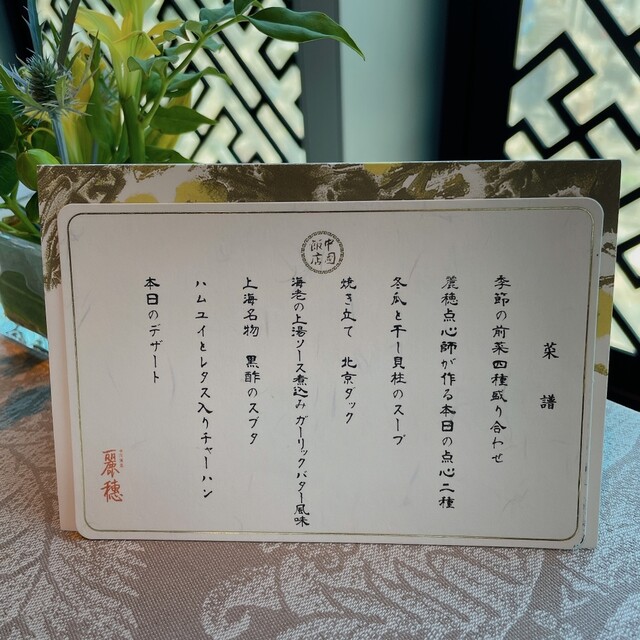 中国
飯店
菜譜
季節の前菜四種盛り合わせ
麗穂点心師が作る本日の点心二種
冬瓜と干し貝柱のスープ
焼き立て 北京ダック
海老の上湯ソース煮込み ガーリックバター風味
上海名物 黒酢のスブタ
ハムユイとレタス入りチャーハン
本日のデザート
麗穂